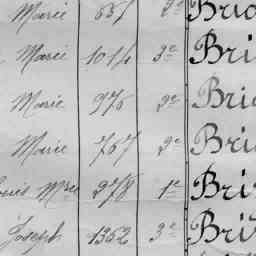 Marie 657 2e Bri
Marie 1014 3e Bri
Marie 976 2e Bri
Marie 767 2e Bri
Louis Mce 278 1e Bri
Joseph 1352 3e Bri